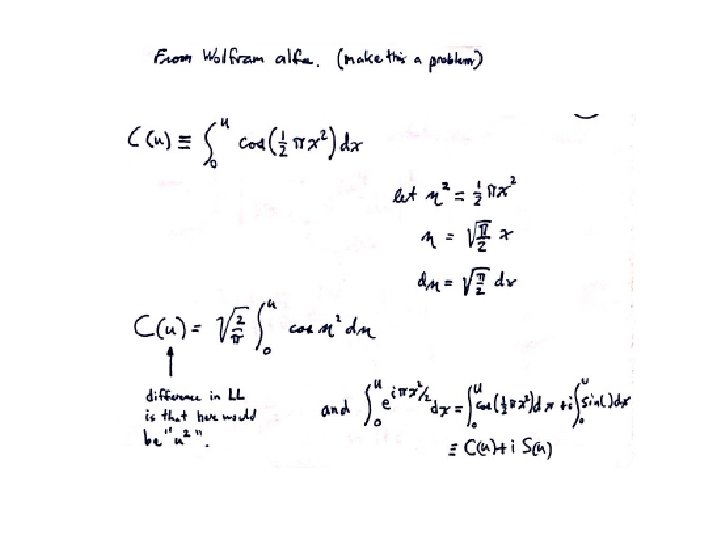 From Wolfram alfa. (make this a problem)
C(u) ≡ ∫₀ᵘ cos(½ πx²) dx
let η² = ½ πx²
η = √(π/2) x
dη = √(π/2) dx
C(u) = √(2/π) ∫₀ᵘ cos η² dη
difference in LL
is that here would
be "u²".
and ∫₀ᵘ e^{iπx²/2} dx = ∫₀ᵘ cos(½ πx²) dx + i∫₀ᵘ sin( ) dx
≡ C(u) + i S(u)